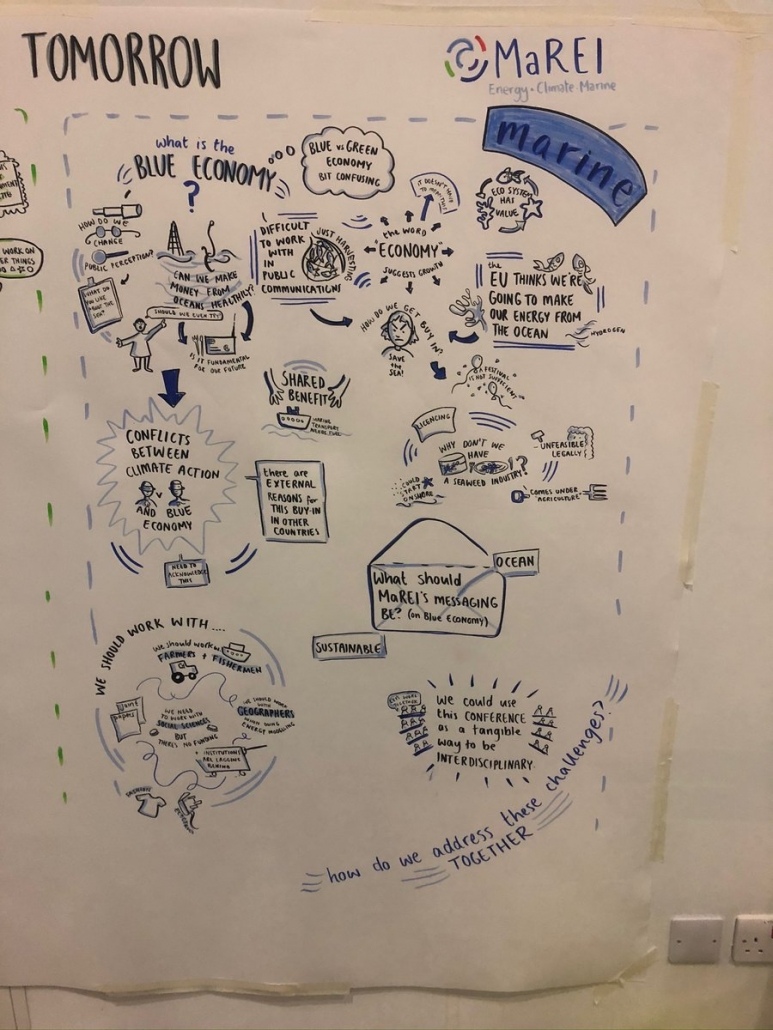 TOMORROW
MaREI
Energy • Climate • Marine
marine
what is the
BLUE ECONOMY
?
BLUE vs GREEN
ECONOMY
BIT CONFUSING
IT DOESN'T HAVE
TO MEAN THIS
ECO SYSTEM
HAS
VALUE
HOW DO WE
CHANGE
PUBLIC PERCEPTION?
CAN WE MAKE
MONEY FROM
OCEANS HEALTHILY?
SHOULD WE EVEN TRY?
IS IT FUNDAMENTAL
FOR OUR FUTURE
DIFFICULT
TO WORK
WITH
IN
PUBLIC
COMMUNICATIONS
JUST HARVESTING
the WORD
"ECONOMY"
SUGGESTS GROWTH
the
EU THINKS WE'RE
GOING TO MAKE
OUR ENERGY FROM
THE OCEAN
HYDROGEN
HOW DO WE GET BUY IN?
SAVE
the
SEA!
A FESTIVAL
IS NOT SUFFICIENT
SHARED
BENEFIT
LICENCING
WHY DON'T WE
HAVE
A SEAWEED INDUSTRY?
UNFEASIBLE
LEGALLY
COMES UNDER
AGRICULTURE
COULD
START
ONSHORE
CONFLICTS
BETWEEN
CLIMATE ACTION
V
AND BLUE
ECONOMY
NEED TO
ACKNOWLEDGE
THIS
there are
EXTERNAL
REASONS for
THIS BUY-IN
IN OTHER
COUNTRIES
OCEAN
What should
MaREI's MESSAGING
BE? (on Blue Economy)
SUSTAINABLE
WE SHOULD WORK WITH....
We should work w
FARMERS + FISHERMEN
WE NEED
TO WORK WITH
SOCIAL SCIENCES
BUT
THERE'S NO FUNDING
WE SHOULD WORK
WITH
GEOGRAPHERS
WHEN DOING
ENERGY MODELLING
INSTITUTIONS
ARE LAGGING
BEHIND
we could use
this CONFERENCE
as a tangible
way to be
INTERDISCIPLINARY.
how do we address these challenges?
TOGETHER